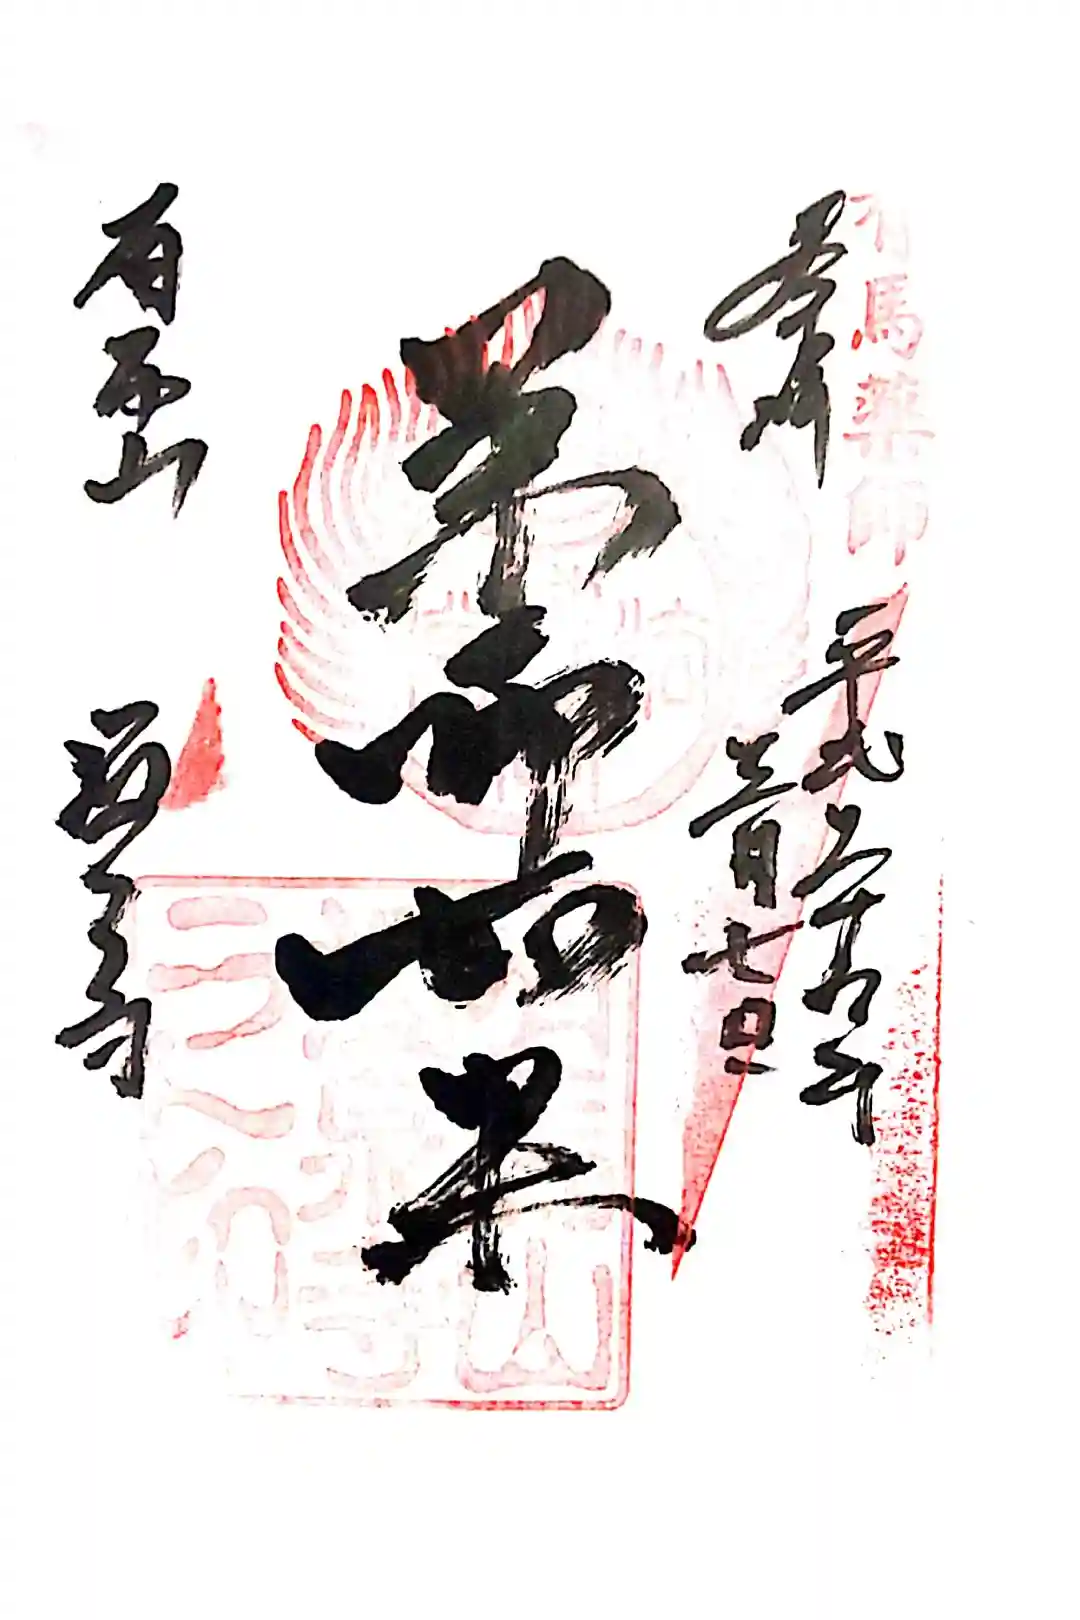 有馬薬師
奉拝
平成二十九年
三月七日
薬師如来
有馬山
温泉寺